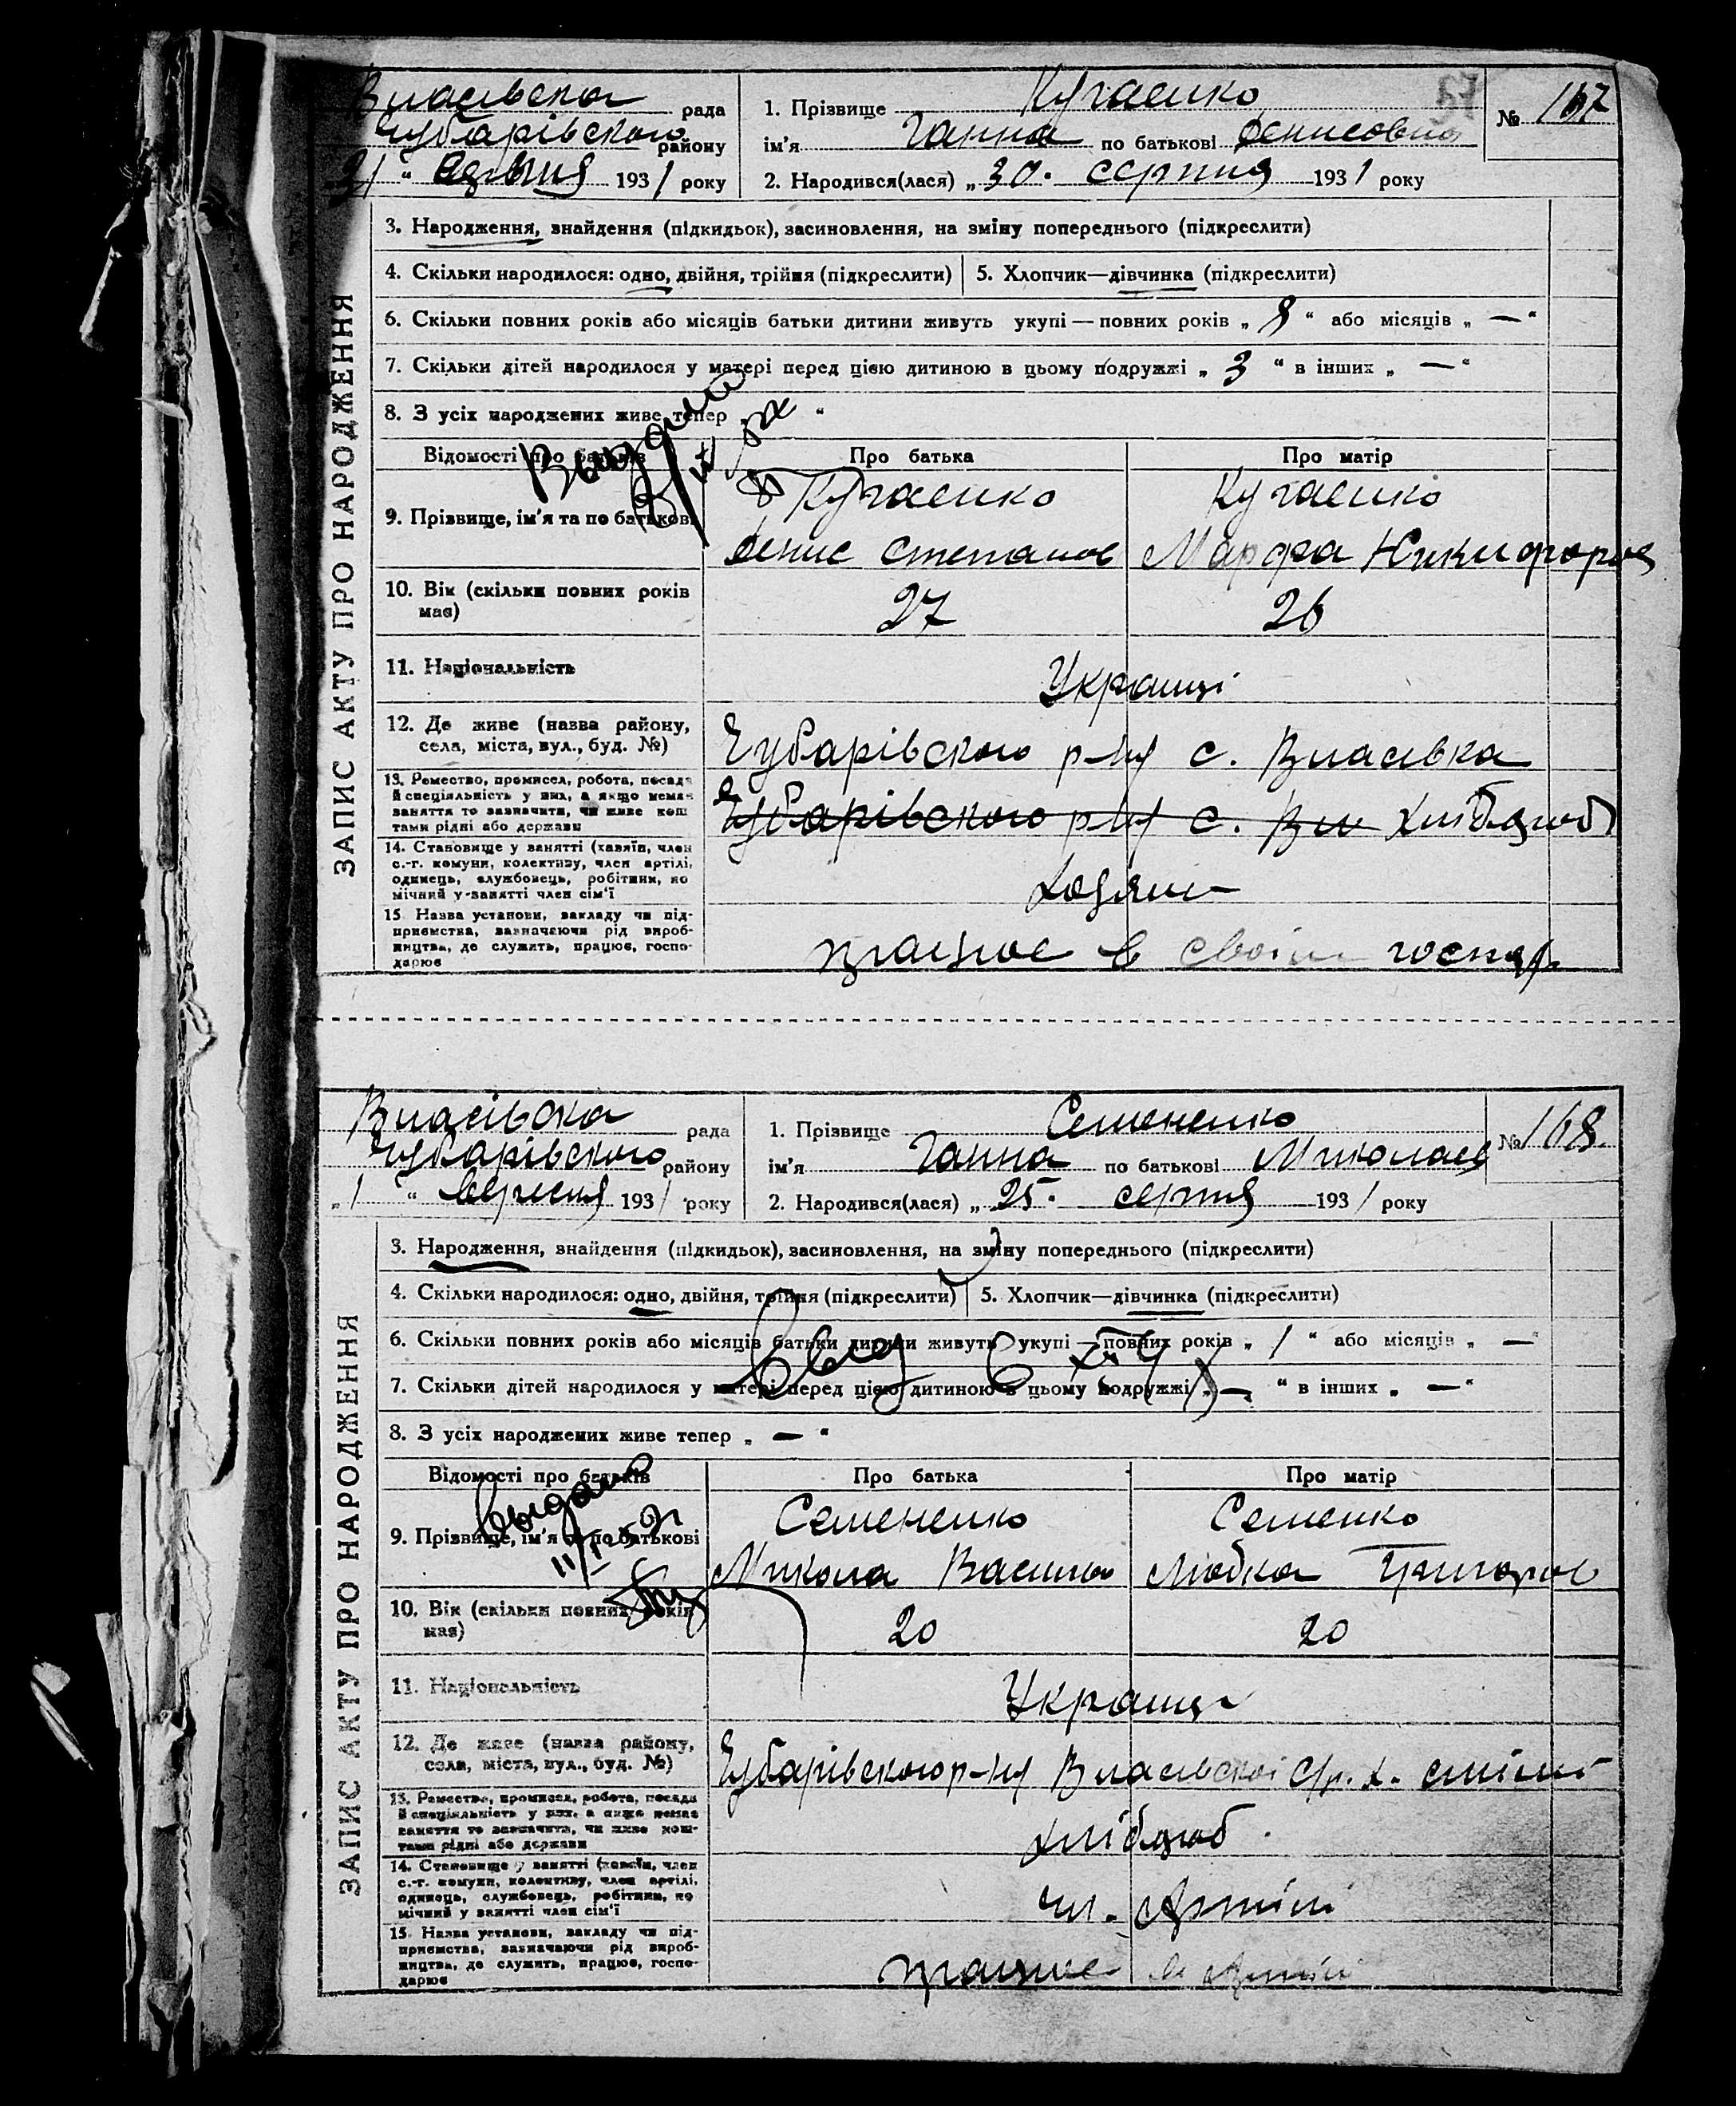 Власівска рада
Чубарівского району
31 " серпня 1931 року
1. Прізвище Кугаенко
ім'я Ганна по батькові Денисовна
2. Народився(лася) „ 30. серпня 1931 року
№ 167
ЗАПИС АКТУ ПРО НАРОДЖЕННЯ
3. Народження, знайдення (підкидьок), засиновлення, на зміну попереднього (підкреслити)
4. Скільки народилося: одно, двійня, трійня (підкреслити) 5. Хлопчик—дівчинка (підкреслити)
6. Скільки повних років або місяців батьки дитини живуть укупі — повних років „ 8 “ або місяців „ — “
7. Скільки дітей народилося у матері перед цією дитиною в цьому подружжі „ 3 “ в інших „ — “
8. З усіх народжених живе тепер “
Відомості про батьків Про батька Про матір
9. Прізвище, ім'я та по батькові Кугаенко Кугаенко
Денис Степанов Марфа Никифоров
10. Вік (скільки повних років має) 27 26
11. Національність Украинці
12. Де живе (назва району, села, міста, вул., буд. №) Чубарівского р-ну с. Власивка
13. Ремество, промисел, робота, посада й спеціяльність у них, а якщо немає заняття то зазначити, чи живе коштами рідні або держави Чубарівского р-ну с. Вл Хлібороб
14. Становище у занятті (хазяїн, член с.-г. комуни, колективу, член артілі, одинець, службовець, робітник, помічний у занятті член сім'ї Хозяин
15. Назва установи, закладу чи підприємства, зазначаючи рід виробництва, де служить, працює, господарює працює в своім господ.
Власівска рада
Чубарівского району
„ 1 “ вересня 1931 року
1. Прізвище Семененко
ім'я Ганна по батькові Миколаев
2. Народився(лася) „ 25. серпня 1931 року
№ 168.
ЗАПИС АКТУ ПРО НАРОДЖЕННЯ
3. Народження, знайдення (підкидьок), засиновлення, на зміну попереднього (підкреслити)
4. Скільки народилося: одно, двійня, трійня (підкреслити) 5. Хлопчик—дівчинка (підкреслити)
6. Скільки повних років або місяців батьки дитини живуть укупі — повних років „ 1 “ або місяців „ — “
7. Скільки дітей народилося у матері перед цією дитиною в цьому подружжі „ — “ в інших „ — “
8. З усіх народжених живе тепер „ — “
Відомості про батьків Про батька Про матір
9. Прізвище, ім'я та по батькові Семененко Семенко
Микола Васильов Любка Григоров
10. Вік (скільки повних років має) 20 20
11. Національність Украинці
12. Де живе (назва району, села, міста, вул., буд. №) Чубарівского р-ну Власивскоі с/р. х.
13. Ремество, промисел, робота, посада й спеціяльність у них, а якщо немає заняття то зазначити, чи живе коштами рідні або держави хлібороб.
14. Становище у занятті (хазяїн, член с.-г. комуни, колективу, член артілі, одинець, службовець, робітник, помічний у занятті член сім'ї чл. Артілі
15. Назва установи, закладу чи підприємства, зазначаючи рід виробництва, де служить, працює, господарює працює в артілі